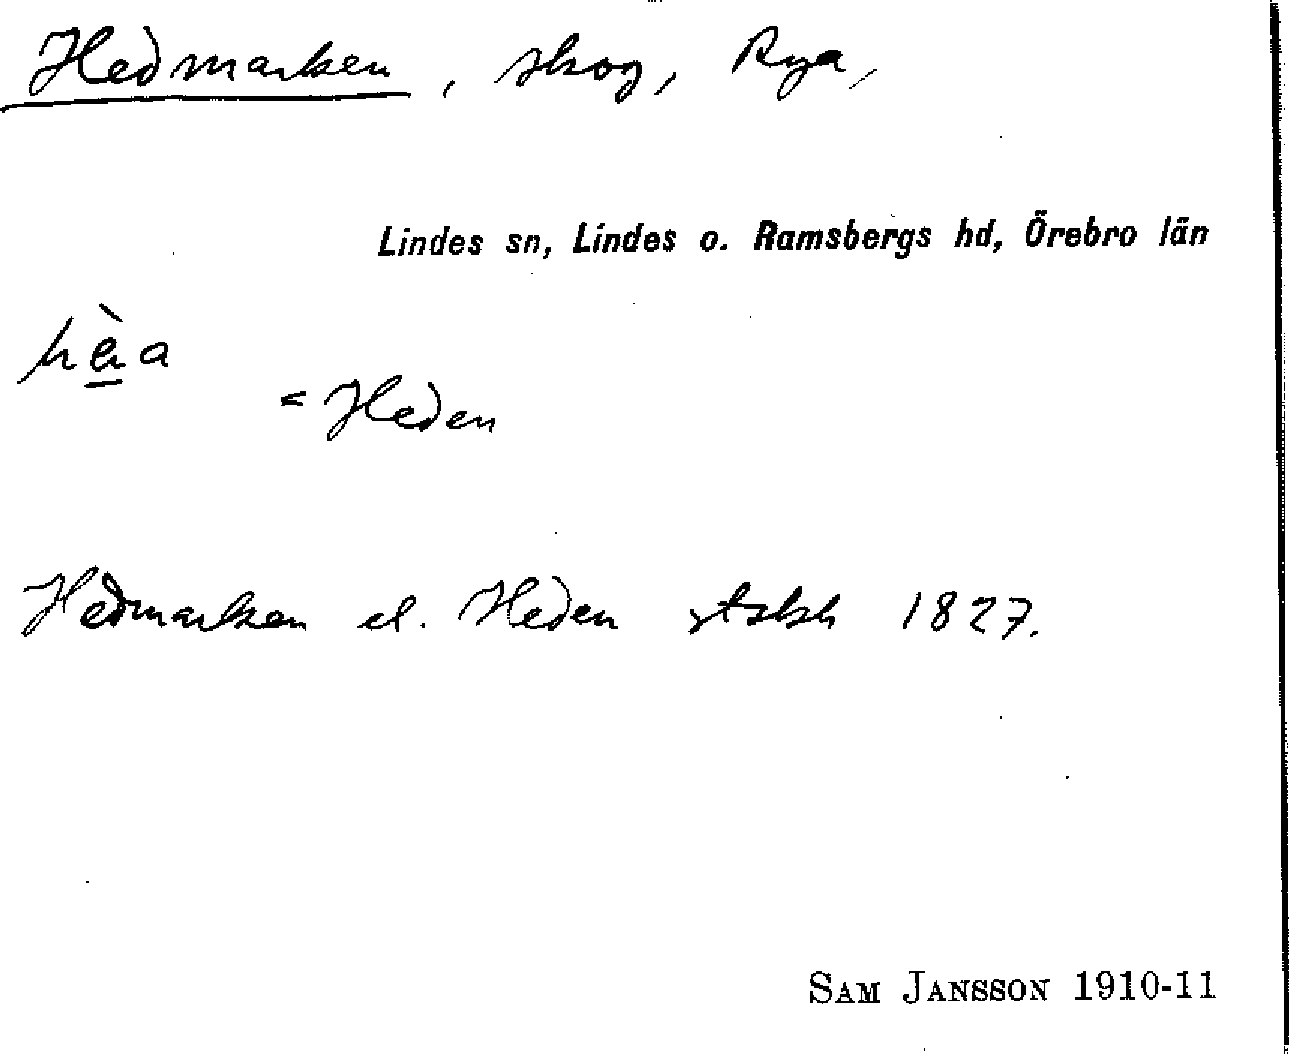 Hedmarken, skog, Rya,
Lindes sn, Lindes o. Ramsbergs hd, Örebro län
hèa
= Heden
Hedmarken el. Heden stskh 1827.
SAM JANSSON 1910-11